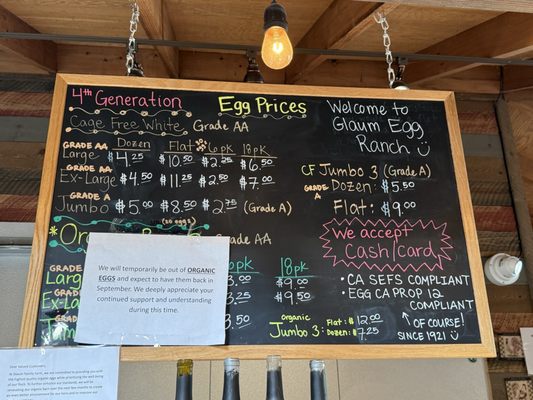 4th Generation
Egg Prices
Cage Free White Grade AA
Dozen Flat 6pk 18pk
GRADE AA
Large $4.25 $10.50 $2.25 $6.50
GRADE AA
Ex-Large $4.50 $11.25 $2.50 $7.00
GRADE A
Jumbo $5.00 $8.50 $2.75 (Grade A)
(20 eggs)
Grade AA
6pk 18pk
GRADE
Large 3.00 $9.00
GRADE
Ex-La 3.25 $9.50
GRADE
Jumb 3.50
We will temporarily be out of ORGANIC
EGGS and expect to have them back in
September. We deeply appreciate your
continued support and understanding
during this time.
organic
Jumbo 3: Flat: $12.00
Dozen: $7.25
Welcome to
Glaum Egg
Ranch
CF Jumbo 3 (Grade A)
GRADE A Dozen: $5.50
Flat: $9.00
We accept
Cash/Card
• CA SEFS COMPLIANT
• EGG CA PROP 12
COMPLIANT
OF COURSE!
SINCE 1921